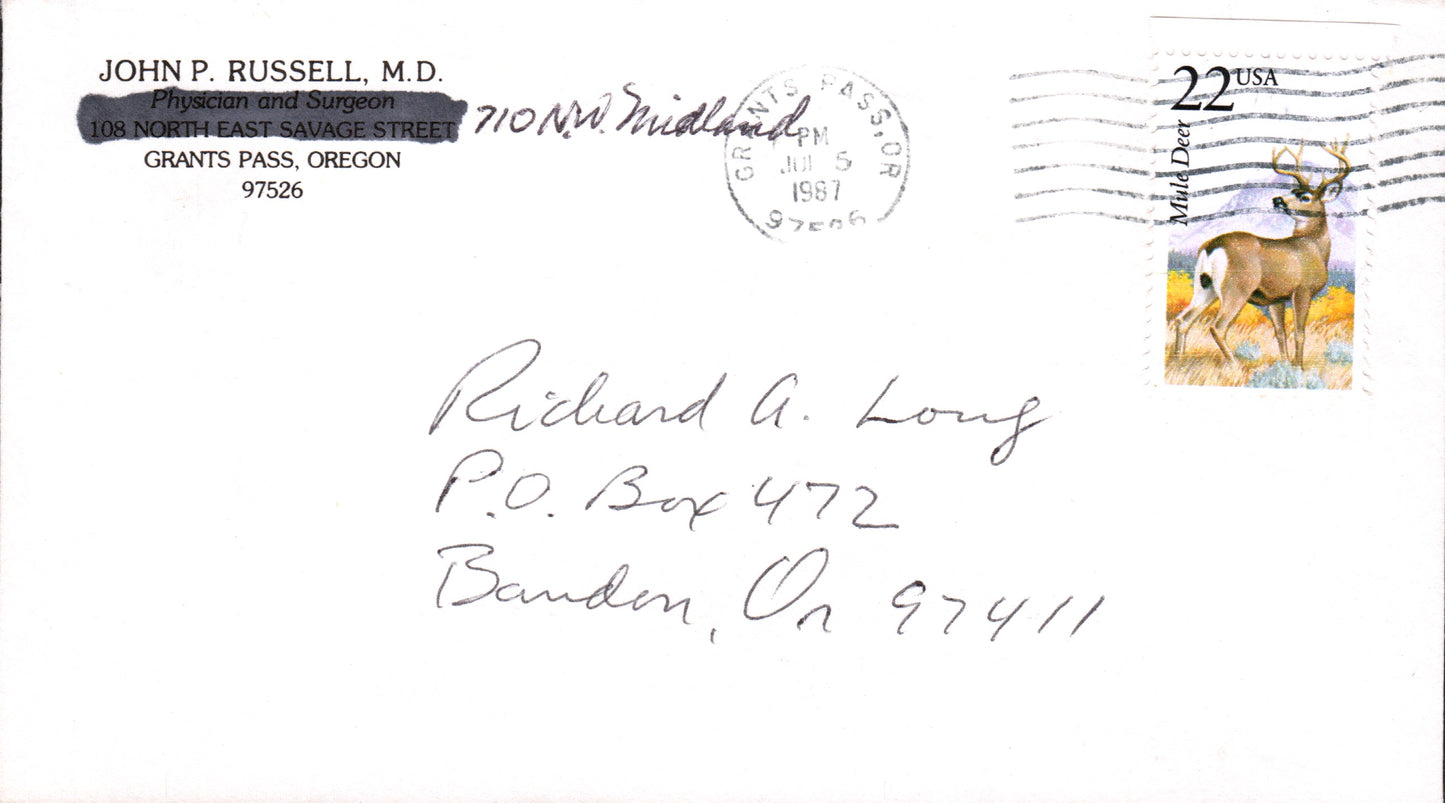 JOHN P. RUSSELL, M.D.
Physician and Surgeon
108 NORTH EAST SAVAGE STREET 710 N.W. Midland
GRANTS PASS, OREGON
97526
GRANTS PASS, OR
PM
5
1987
97526
22 USA
Mule Deer
Richard A. Long
P.O. Box 472
Bandon, Or 97411